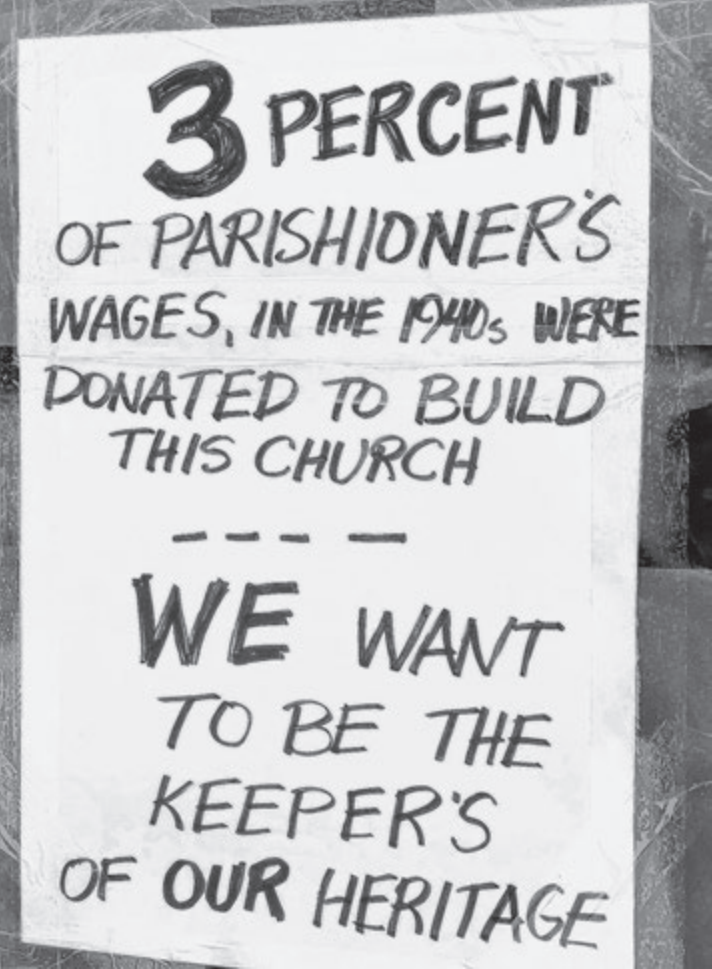 3 PERCENT
OF PARISHIONER'S
WAGES, IN THE 1940s WERE
DONATED TO BUILD
THIS CHURCH
- - - —
WE WANT
TO BE THE
KEEPER'S
OF OUR HERITAGE